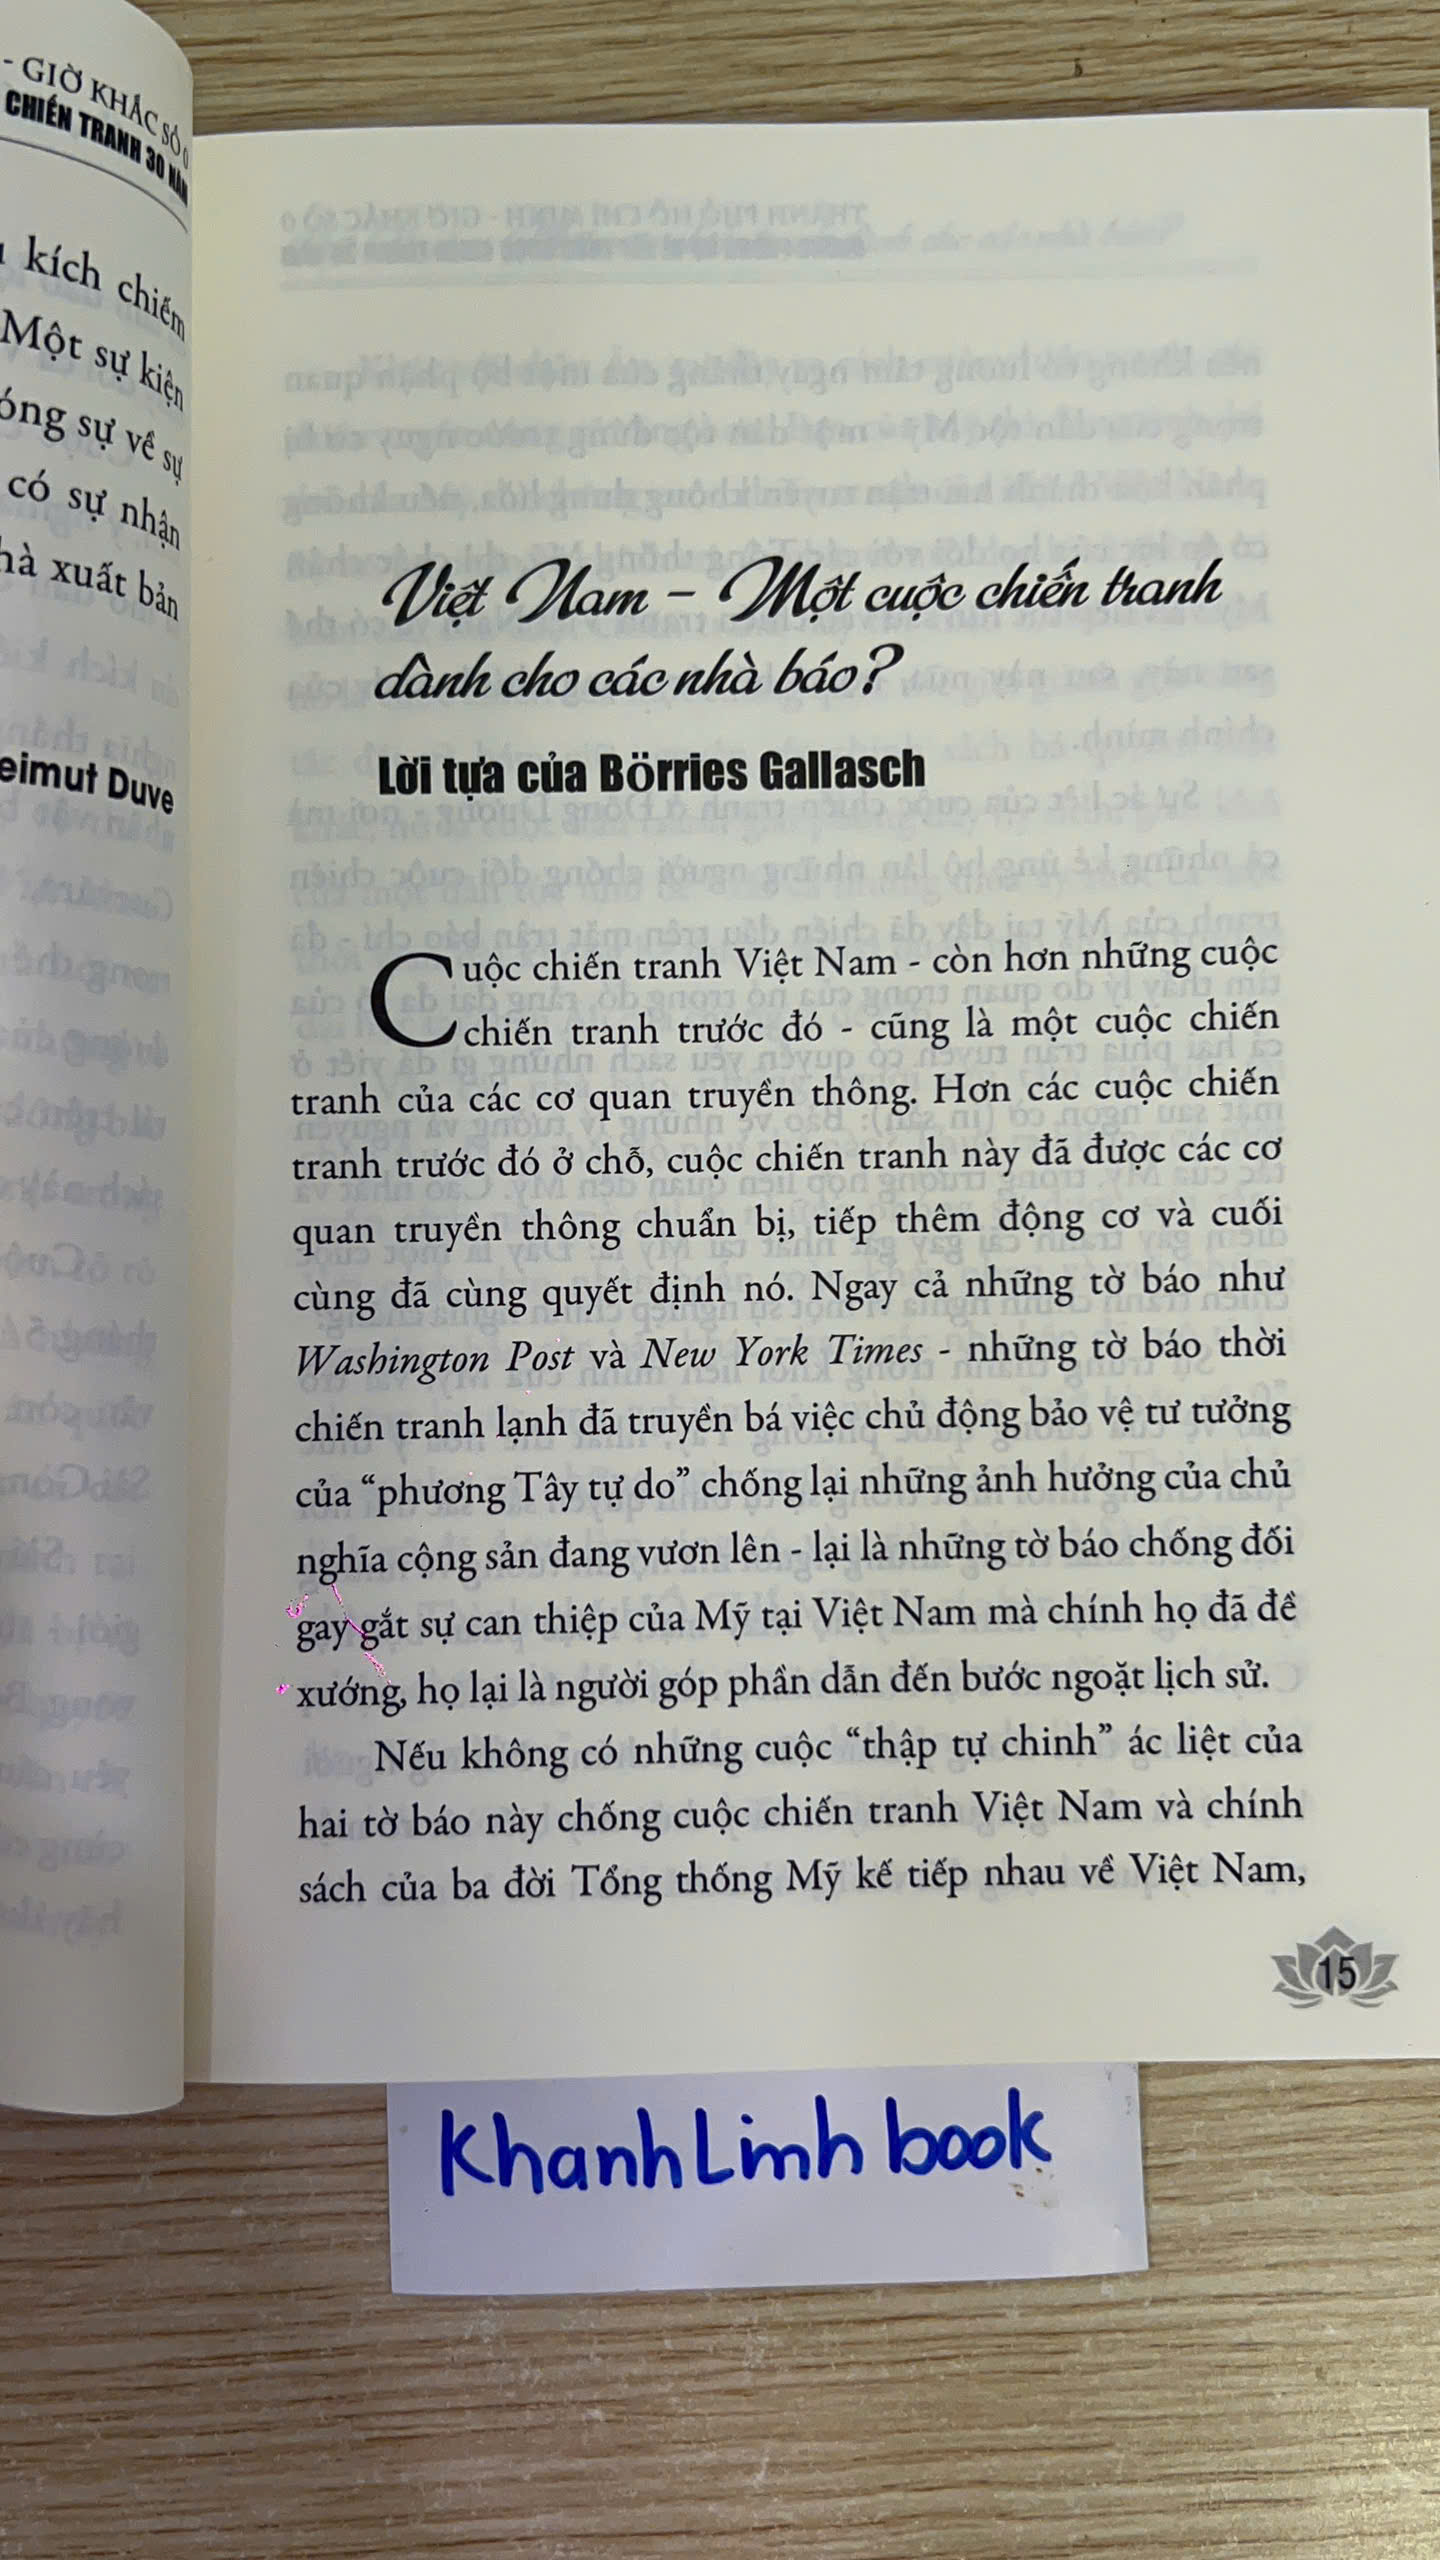 - GIỜ KHẮC SỐ 0
CHIẾN TRANH 30 NĂM
kích chiếm
Một sự kiện
óng sự về sự
có sự nhận
hà xuất bản
eimut Duve
Việt Nam – Một cuộc chiến tranh
dành cho các nhà báo?
Lời tựa của Börries Gallasch
Cuộc chiến tranh Việt Nam - còn hơn những cuộc
chiến tranh trước đó - cũng là một cuộc chiến
tranh của các cơ quan truyền thông. Hơn các cuộc chiến
tranh trước đó ở chỗ, cuộc chiến tranh này đã được các cơ
quan truyền thông chuẩn bị, tiếp thêm động cơ và cuối
cùng đã cùng quyết định nó. Ngay cả những tờ báo như
Washington Post và New York Times - những tờ báo thời
chiến tranh lạnh đã truyền bá việc chủ động bảo vệ tư tưởng
của “phương Tây tự do” chống lại những ảnh hưởng của chủ
nghĩa cộng sản đang vươn lên - lại là những tờ báo chống đối
gay gắt sự can thiệp của Mỹ tại Việt Nam mà chính họ đã đề
xướng, họ lại là người góp phần dẫn đến bước ngoặt lịch sử.
Nếu không có những cuộc “thập tự chinh” ác liệt của
hai tờ báo này chống cuộc chiến tranh Việt Nam và chính
sách của ba đời Tổng thống Mỹ kế tiếp nhau về Việt Nam,
15
KhanhLinh book